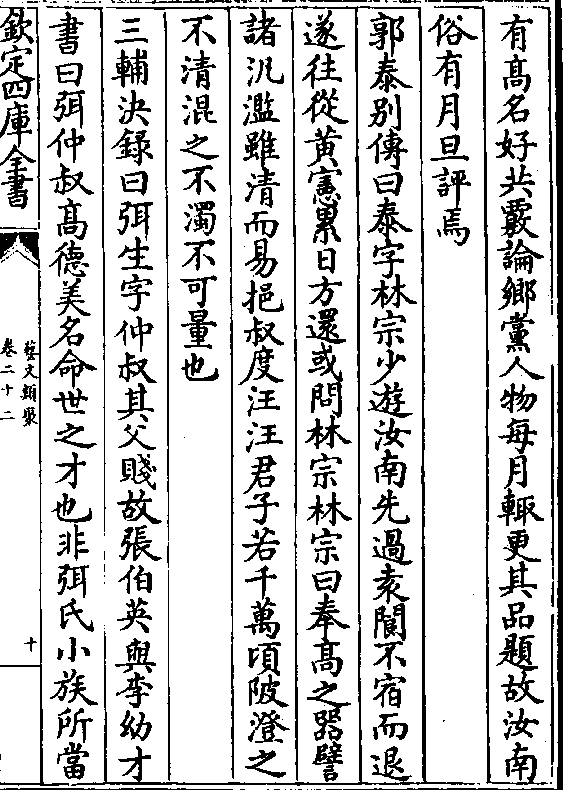 有髙名好共覈論鄉黨人物每月輙更其品題故汝南
俗有月旦評焉
郭泰别傳曰泰字林宗少遊汝南先過袁閬不宿而退
遂往從黄憲累日方還或問林宗林宗曰奉髙之器譬
諸汎濫雖清而易挹叔度汪汪君子若千萬頃陂澄之
不清混之不濁不可量也
三輔決録曰弭生字仲叔其父賤故張伯英與李幼才
書曰弭仲叔髙德美名命世之才也非弭氏小族所當
欽定四庫全書
藝文類聚
卷二十二
十